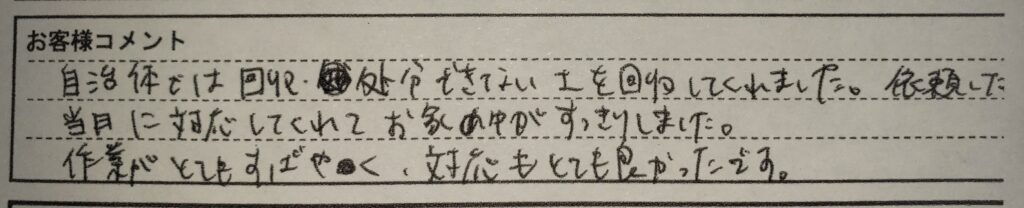 お客様コメント
自治体では回収・処分できない土を回収してくれました。依頼した
当日に対応してくれてお家の中がすっきりしました。
作業がとてもすばやく、対応もとても良かったです。